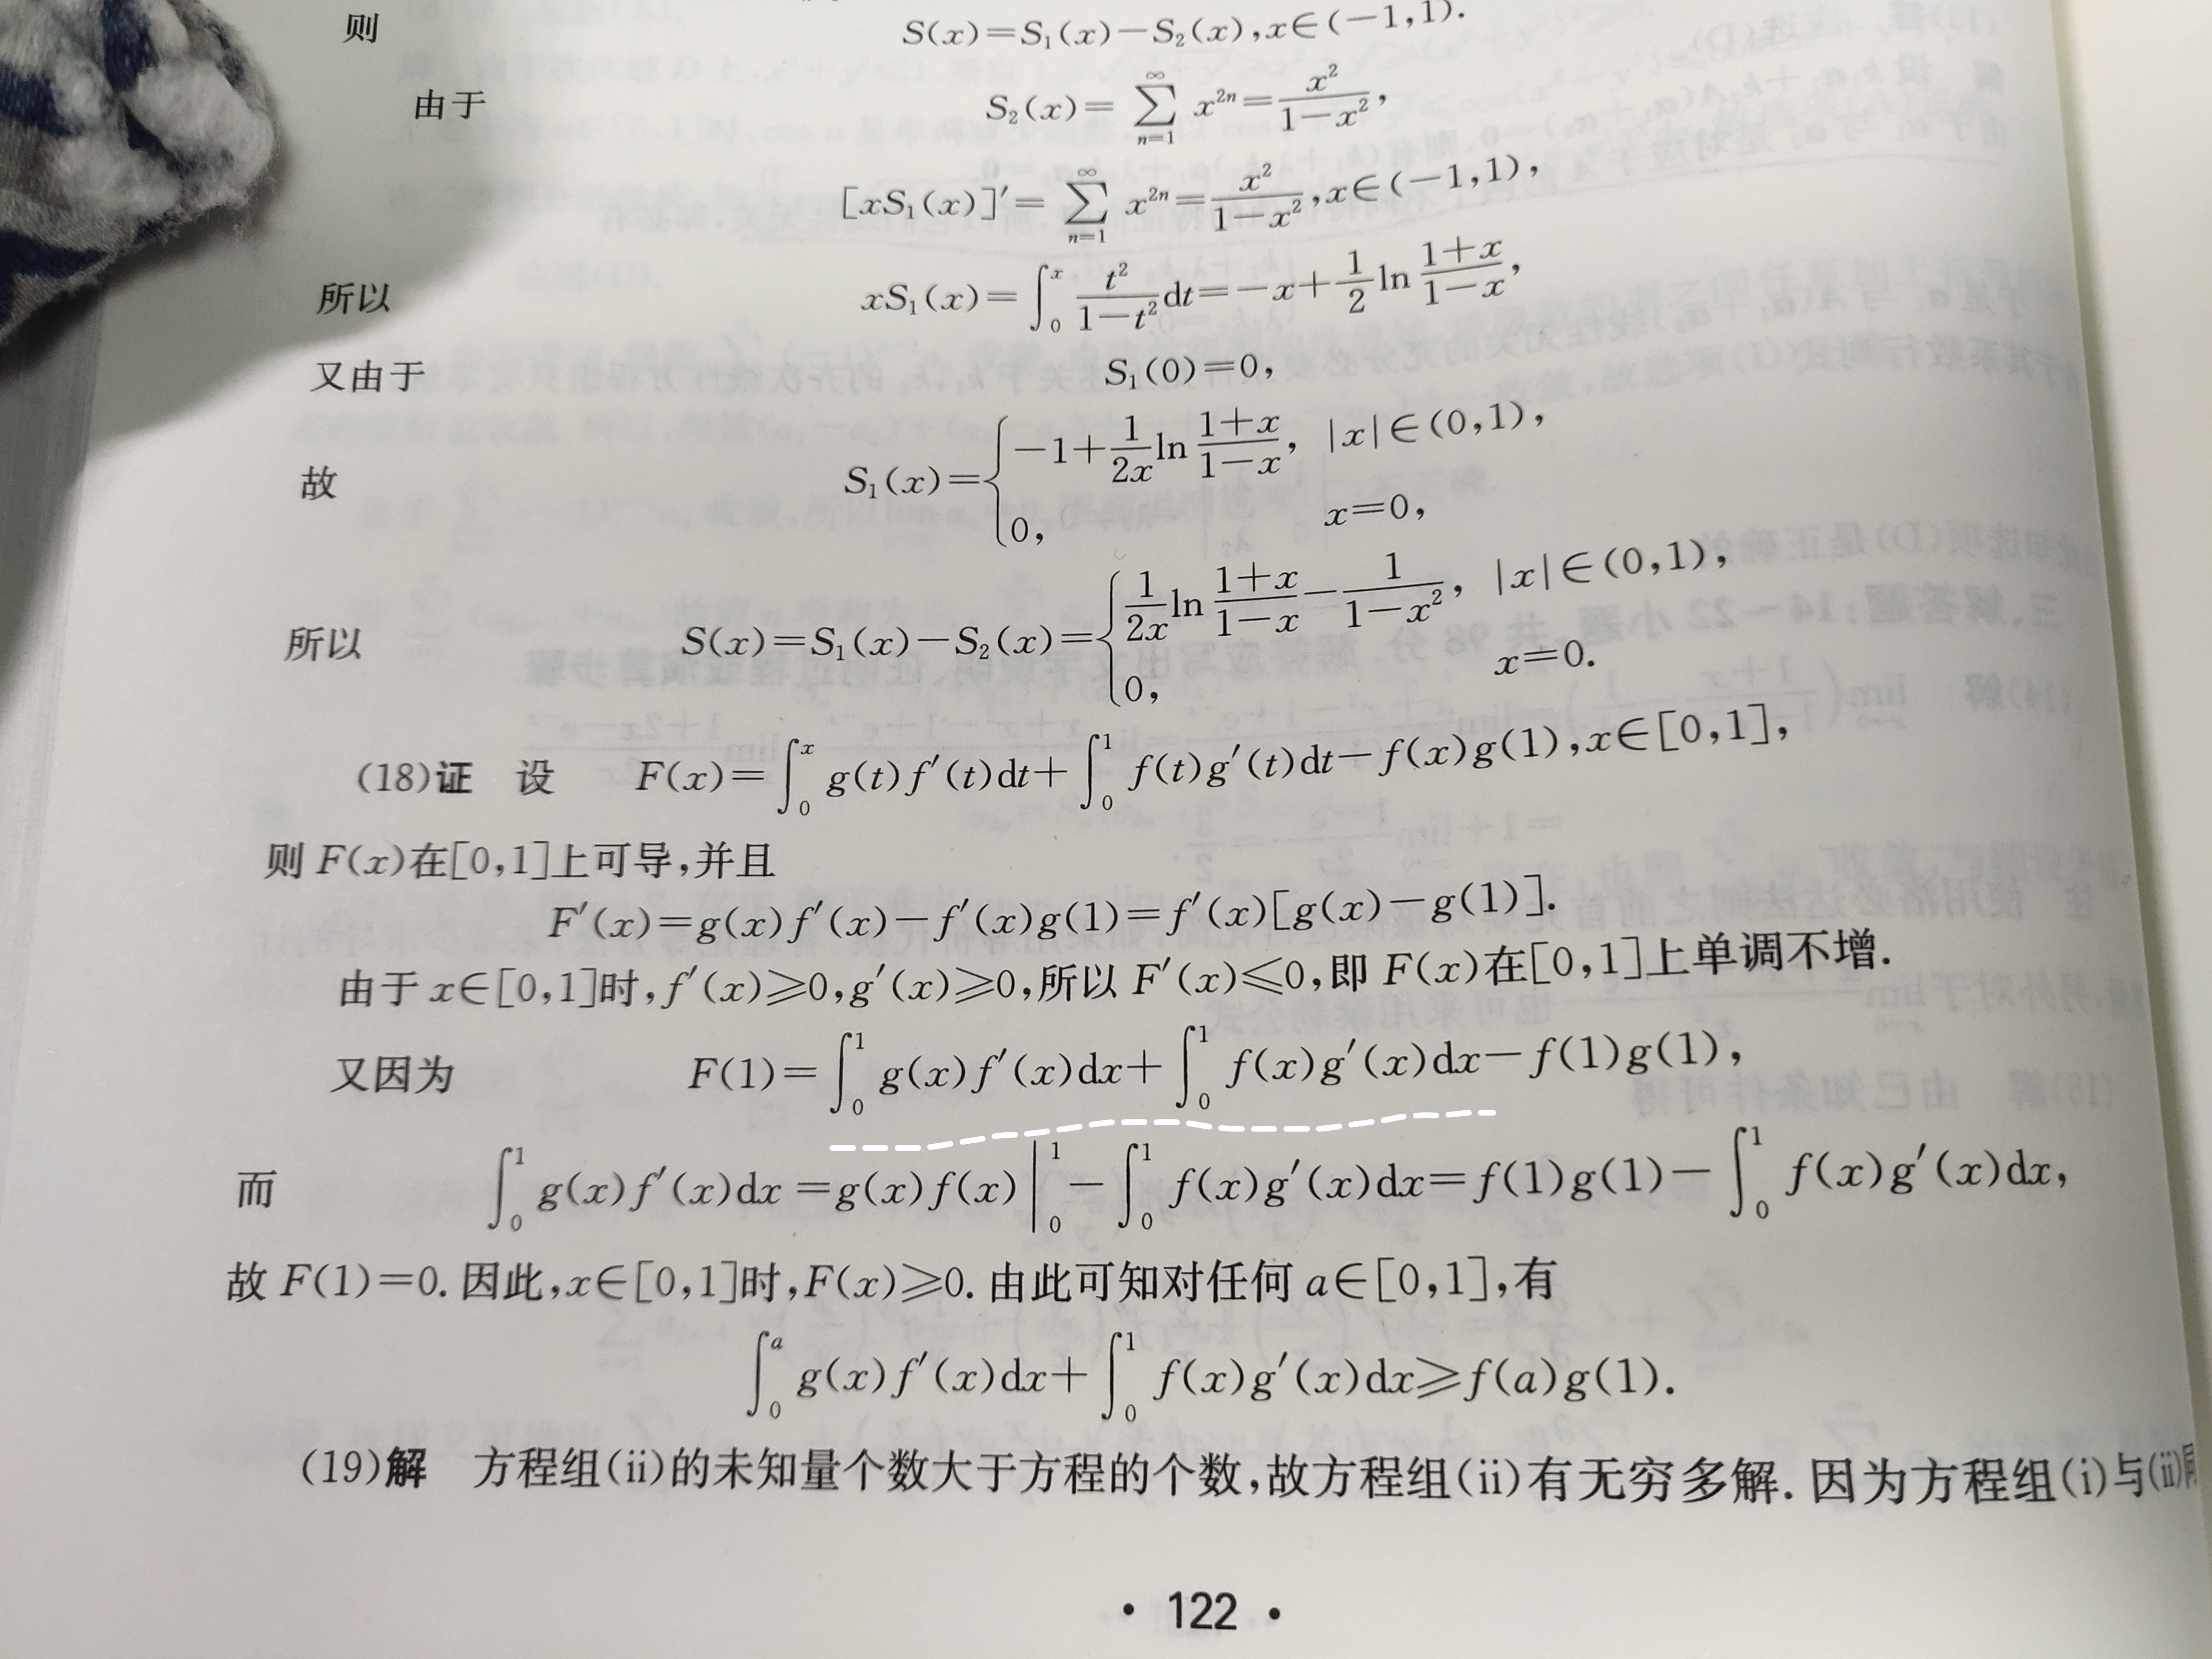 则 S(x)=S₁(x)−S₂(x),x∈(−1,1).
由于 S₂(x)= ∑_{n=1}^{∞} x^{2n}=\frac{x²}{1−x²},
[xS₁(x)]′= ∑_{n=1}^{∞} x^{2n}=\frac{x²}{1−x²},x∈(−1,1),
所以 xS₁(x)=∫₀ˣ \frac{t²}{1−t²}dt=−x+\frac{1}{2}ln\frac{1+x}{1−x},
又由于 S₁(0)=0,
故 S₁(x)={−1+\frac{1}{2x}ln\frac{1+x}{1−x}, |x|∈(0,1),
0, x=0,
所以 S(x)=S₁(x)−S₂(x)={\frac{1}{2x}ln\frac{1+x}{1−x}−\frac{1}{1−x²}, |x|∈(0,1),
0, x=0.
(18)证 设 F(x)=∫₀ˣ g(t)f′(t)dt+∫₀¹ f(t)g′(t)dt−f(x)g(1),x∈[0,1],
则 F(x)在[0,1]上可导,并且
F′(x)=g(x)f′(x)−f′(x)g(1)=f′(x)[g(x)−g(1)].
由于 x∈[0,1]时,f′(x)⩾0,g′(x)⩾0,所以 F′(x)⩽0,即 F(x)在[0,1]上单调不增.
又因为 F(1)=∫₀¹ g(x)f′(x)dx+∫₀¹ f(x)g′(x)dx−f(1)g(1),
而 ∫₀¹ g(x)f′(x)dx=g(x)f(x)|₀¹−∫₀¹ f(x)g′(x)dx=f(1)g(1)−∫₀¹ f(x)g′(x)dx,
故 F(1)=0.因此,x∈[0,1]时,F(x)⩾0.由此可知对任何 a∈[0,1],有
∫₀ᵃ g(x)f′(x)dx+∫₀¹ f(x)g′(x)dx⩾f(a)g(1).
(19)解 方程组(ii)的未知量个数大于方程的个数,故方程组(ii)有无穷多解.因为方程组(i)与(ii)
· 122 ·